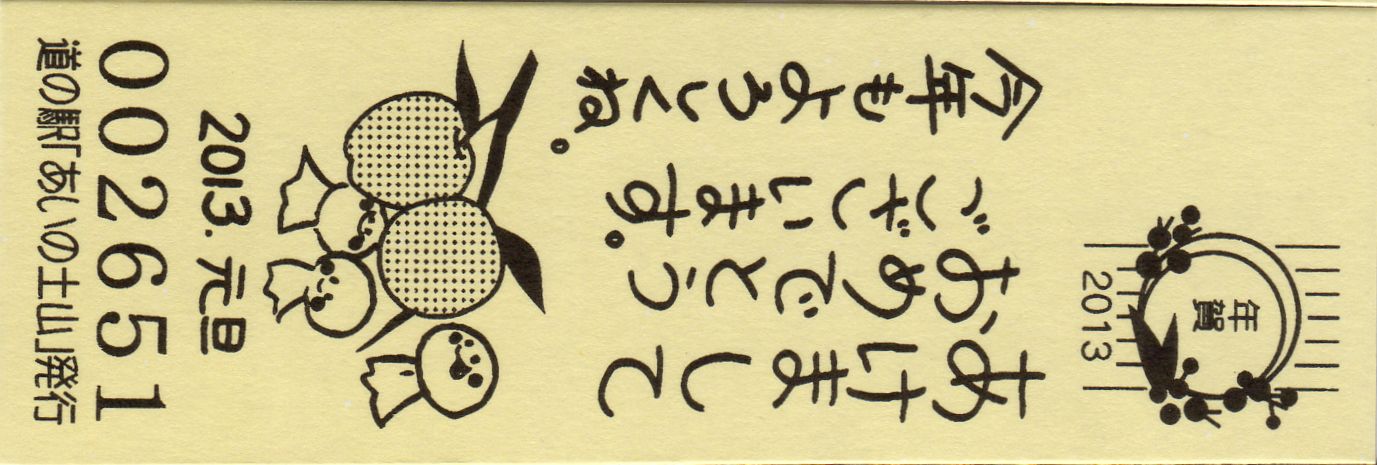 年賀
2013
あけまして
おめでとう
ございます。
今年もよろしくね。
2013. 元旦
002651
道の駅「あいの土山」発行